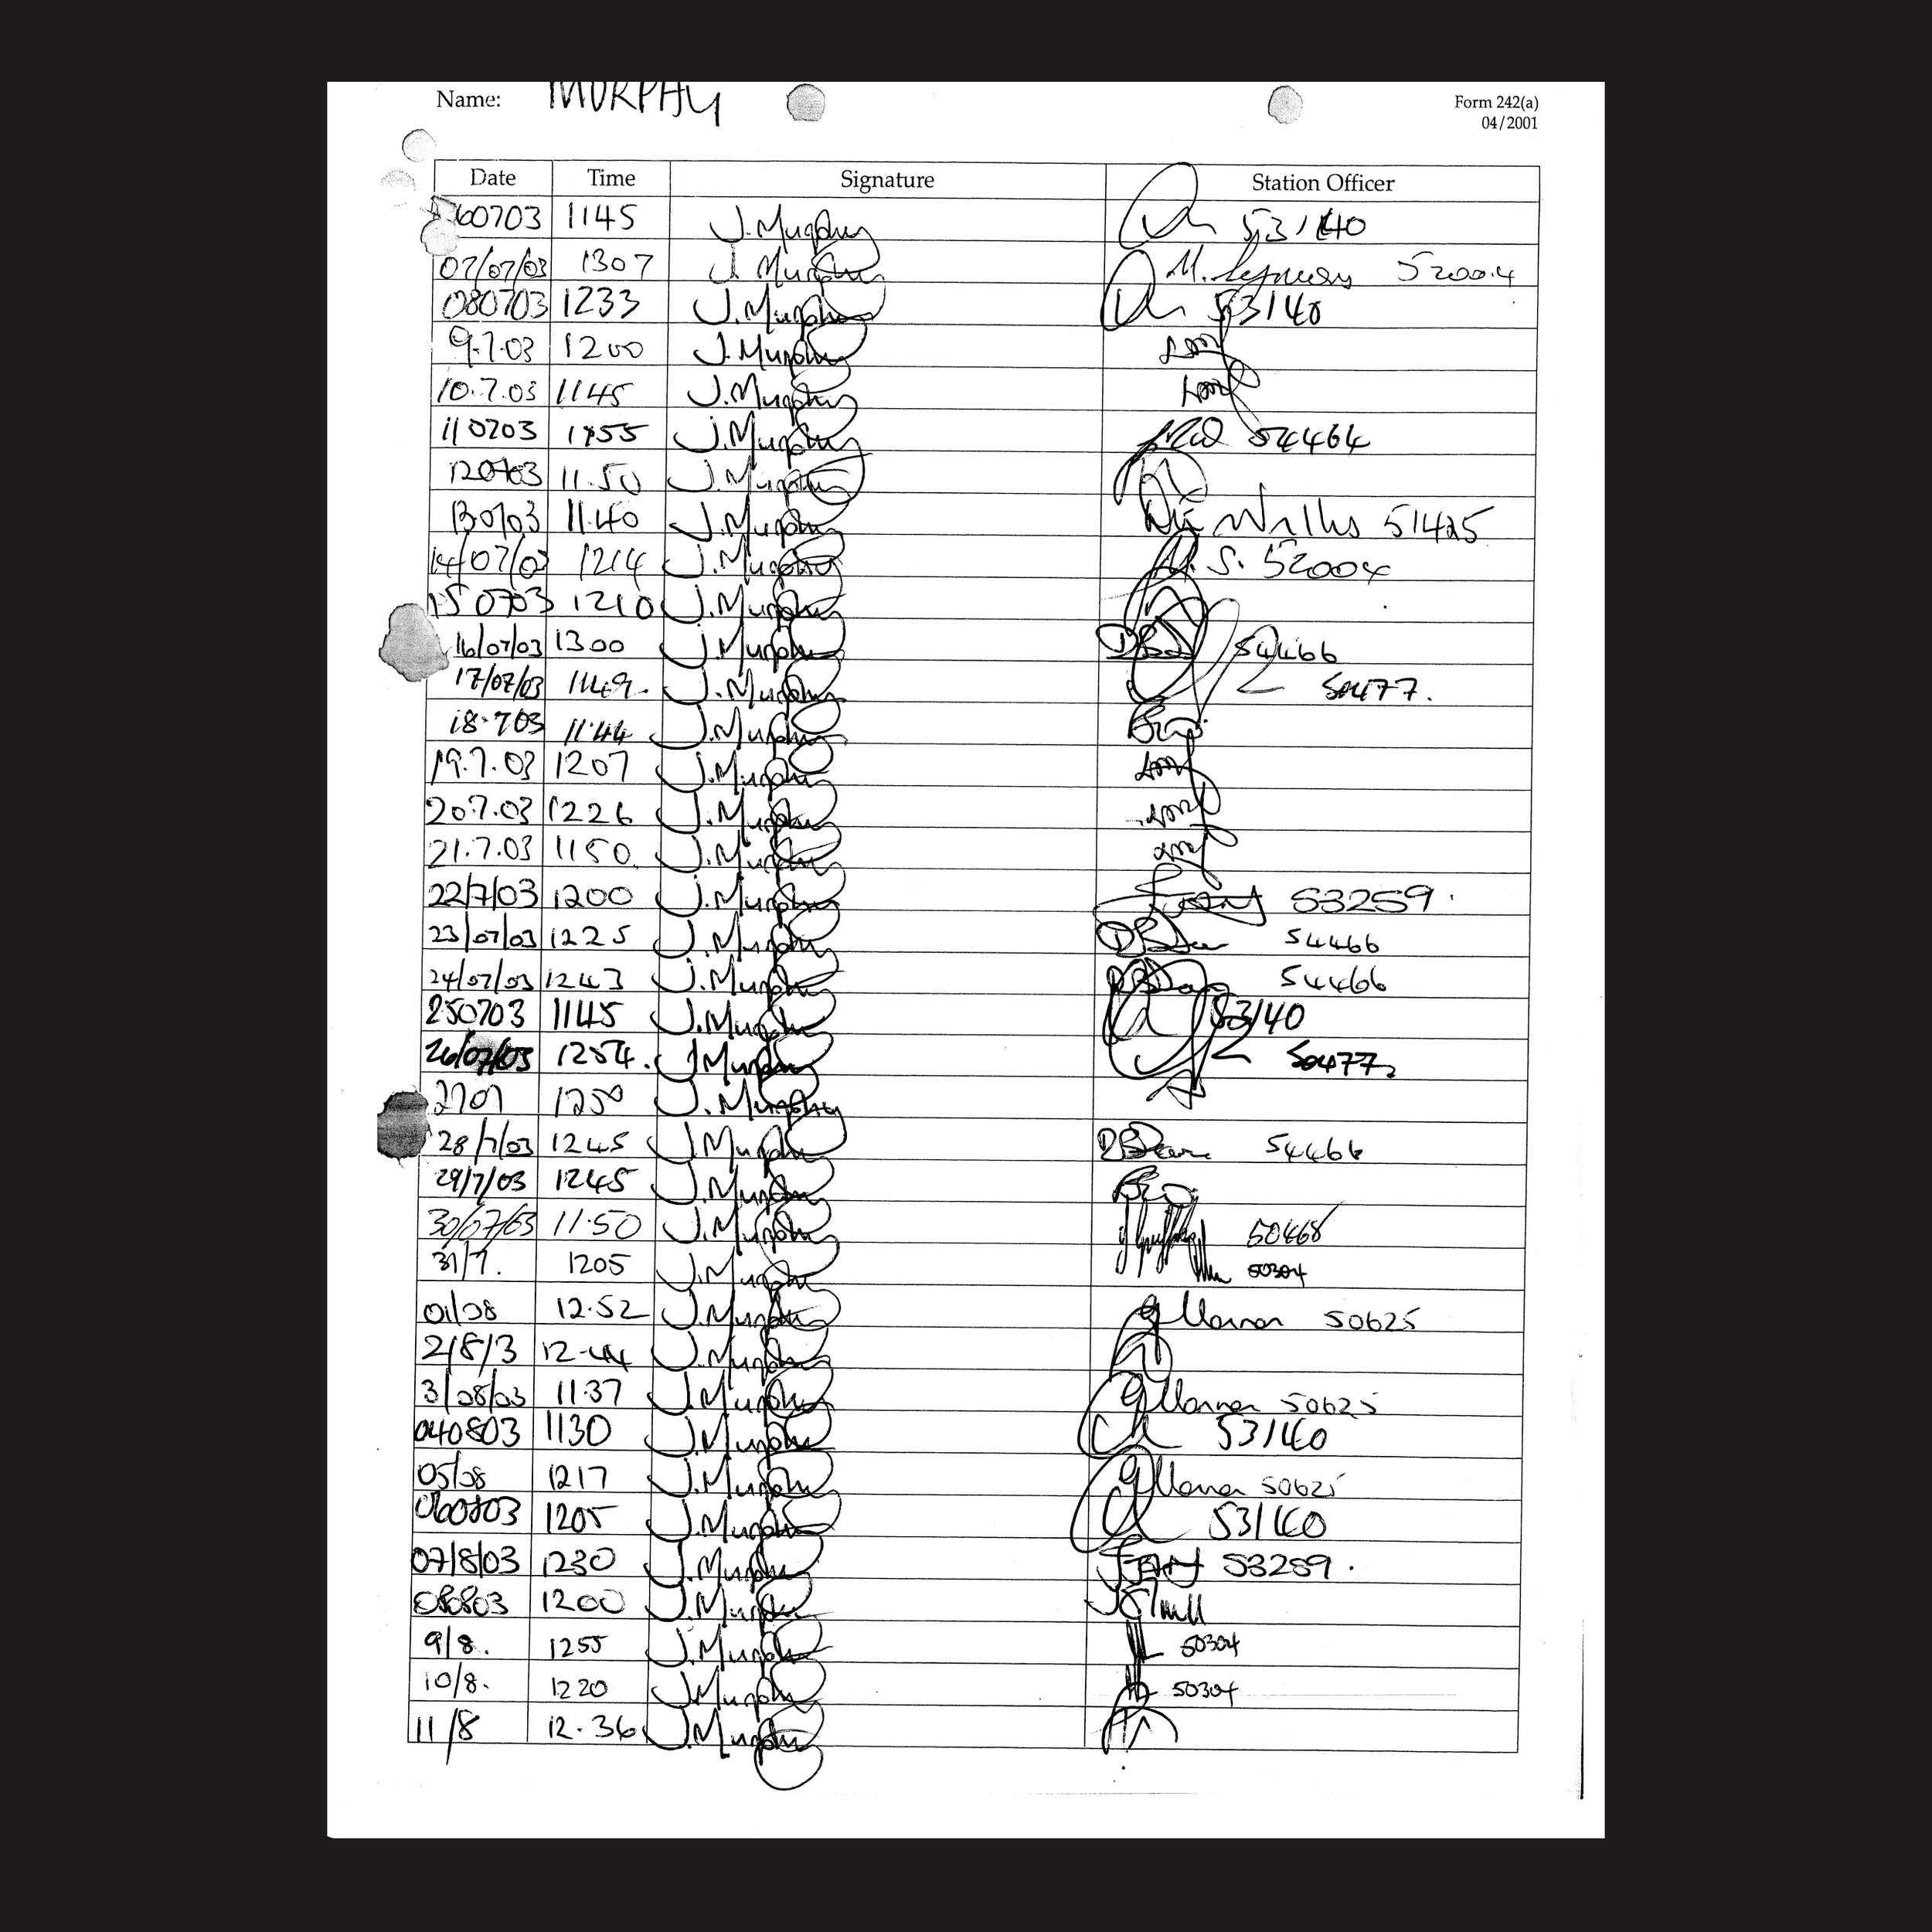 Name: MURPHY
Form 242(a)
04/2001
Date Time Signature Station Officer
60703 1145 J.Murphy 53140
07/07/03 1307 J. Murphy 52004
080703 1233 J.Murphy 53140
9.7.03 1200 J.Murphy
10.7.03 1145 J.Murphy
110703 1155 J.Murphy 54464
120703 11.50 J.Murphy
130703 11.40 J.Murphy 51425
14/07/03 1214 J.Murphy M.S. 52004
150703 1210 J.Murphy
16/07/03 1300 J.Murphy 54466
17/07/03 1149. J.Murphy 50477.
18.703 11.44 J.Murphy
19.7.03 1207 J.Murphy
20.7.03 1226 J.Murphy
21.7.03 1150. J.Murphy
22/7/03 1200 J.Murphy 53259.
23/07/03 1225 J.Murphy 54466
24/07/03 1243 J.Murphy 54466
250703 1145 J.Murphy 53140
26/07/03 1254. J.Murphy 50477
2707 1250 J.Murphy
28/7/03 1245 J.Murphy 54466
29/7/03 1245 J.Murphy
30/07/03 11.50 J.Murphy 50468
31/7. 1205 J.Murphy 50304
01/08 12.52 J.Murphy 50625
2/8/3 12.44 J.Murphy
3/08/03 11.37 J.Murphy 50625
040803 1130 J.Murphy 53140
05/08 1217 J.Murphy 50625
060803 1205 J.Murphy 53140
07/8/03 1230 J.Murphy 53259.
080803 1200 J.Murphy
9/8. 1255 J.Murphy 50304
10/8. 1220 J.Murphy 50304
11/8 12.36 J.Murphy